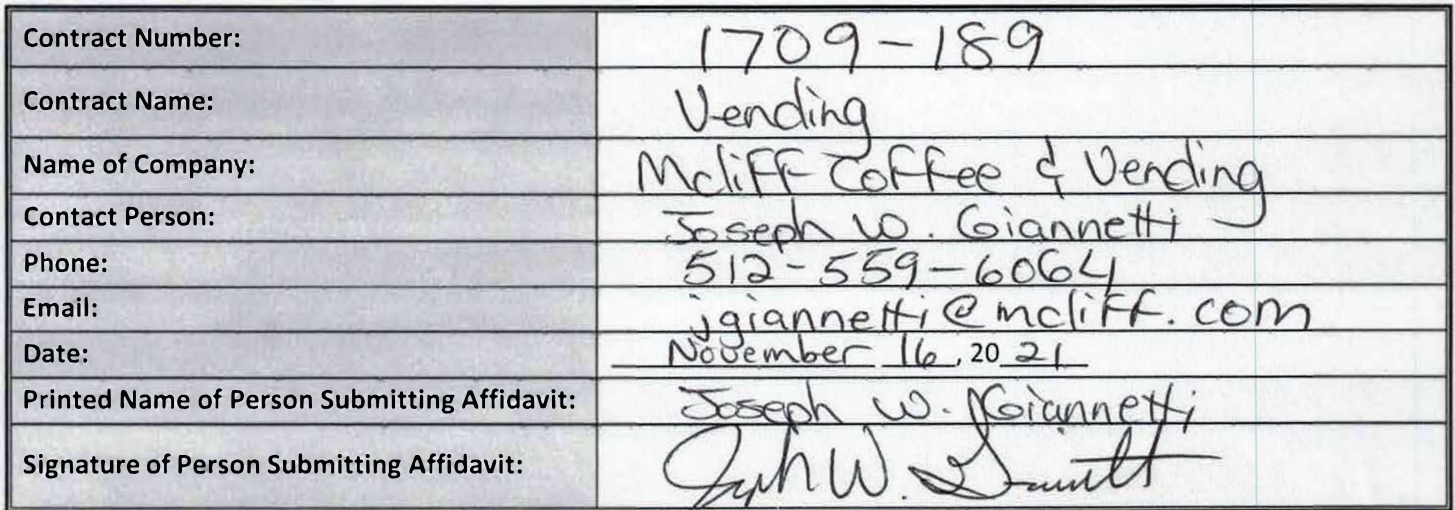 Contract Number: 1709-189
Contract Name: Vending
Name of Company: Mcliff Coffee & Vending
Contact Person: Joseph W. Giannetti
Phone: 512-559-6064
Email: jgiannetti@mcliff.com
Date: November 16, 20 21
Printed Name of Person Submitting Affidavit: Joseph W. Giannetti
Signature of Person Submitting Affidavit: Joseph W. Giannetti